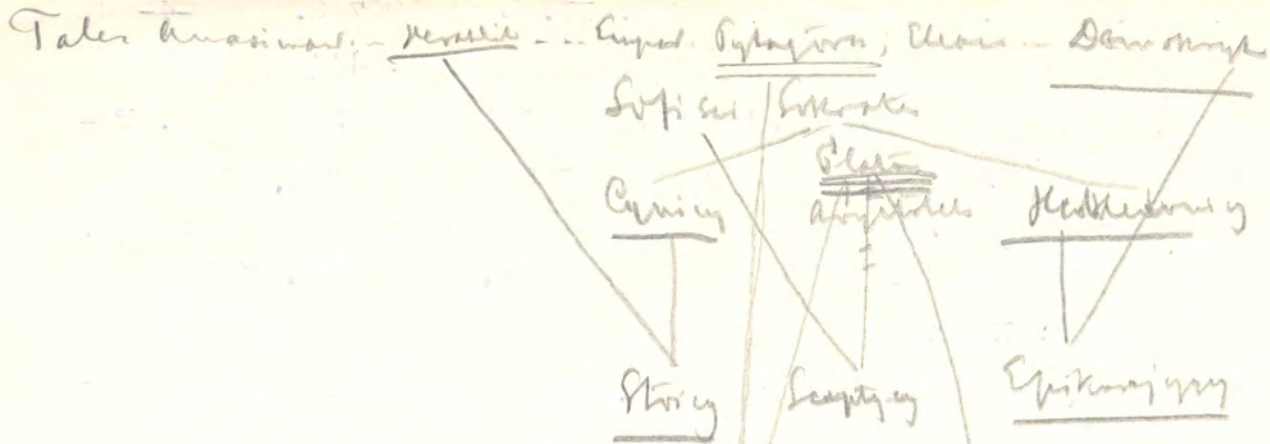 Tales Anaximand. - Heraklit - .. Emped. Pytagoras, Eleaci - Demokryt
Sofisci Sokrates
Platon
Cynicy Arystoteles Hedonicy
Stoicy Sceptycy Epikurejczycy